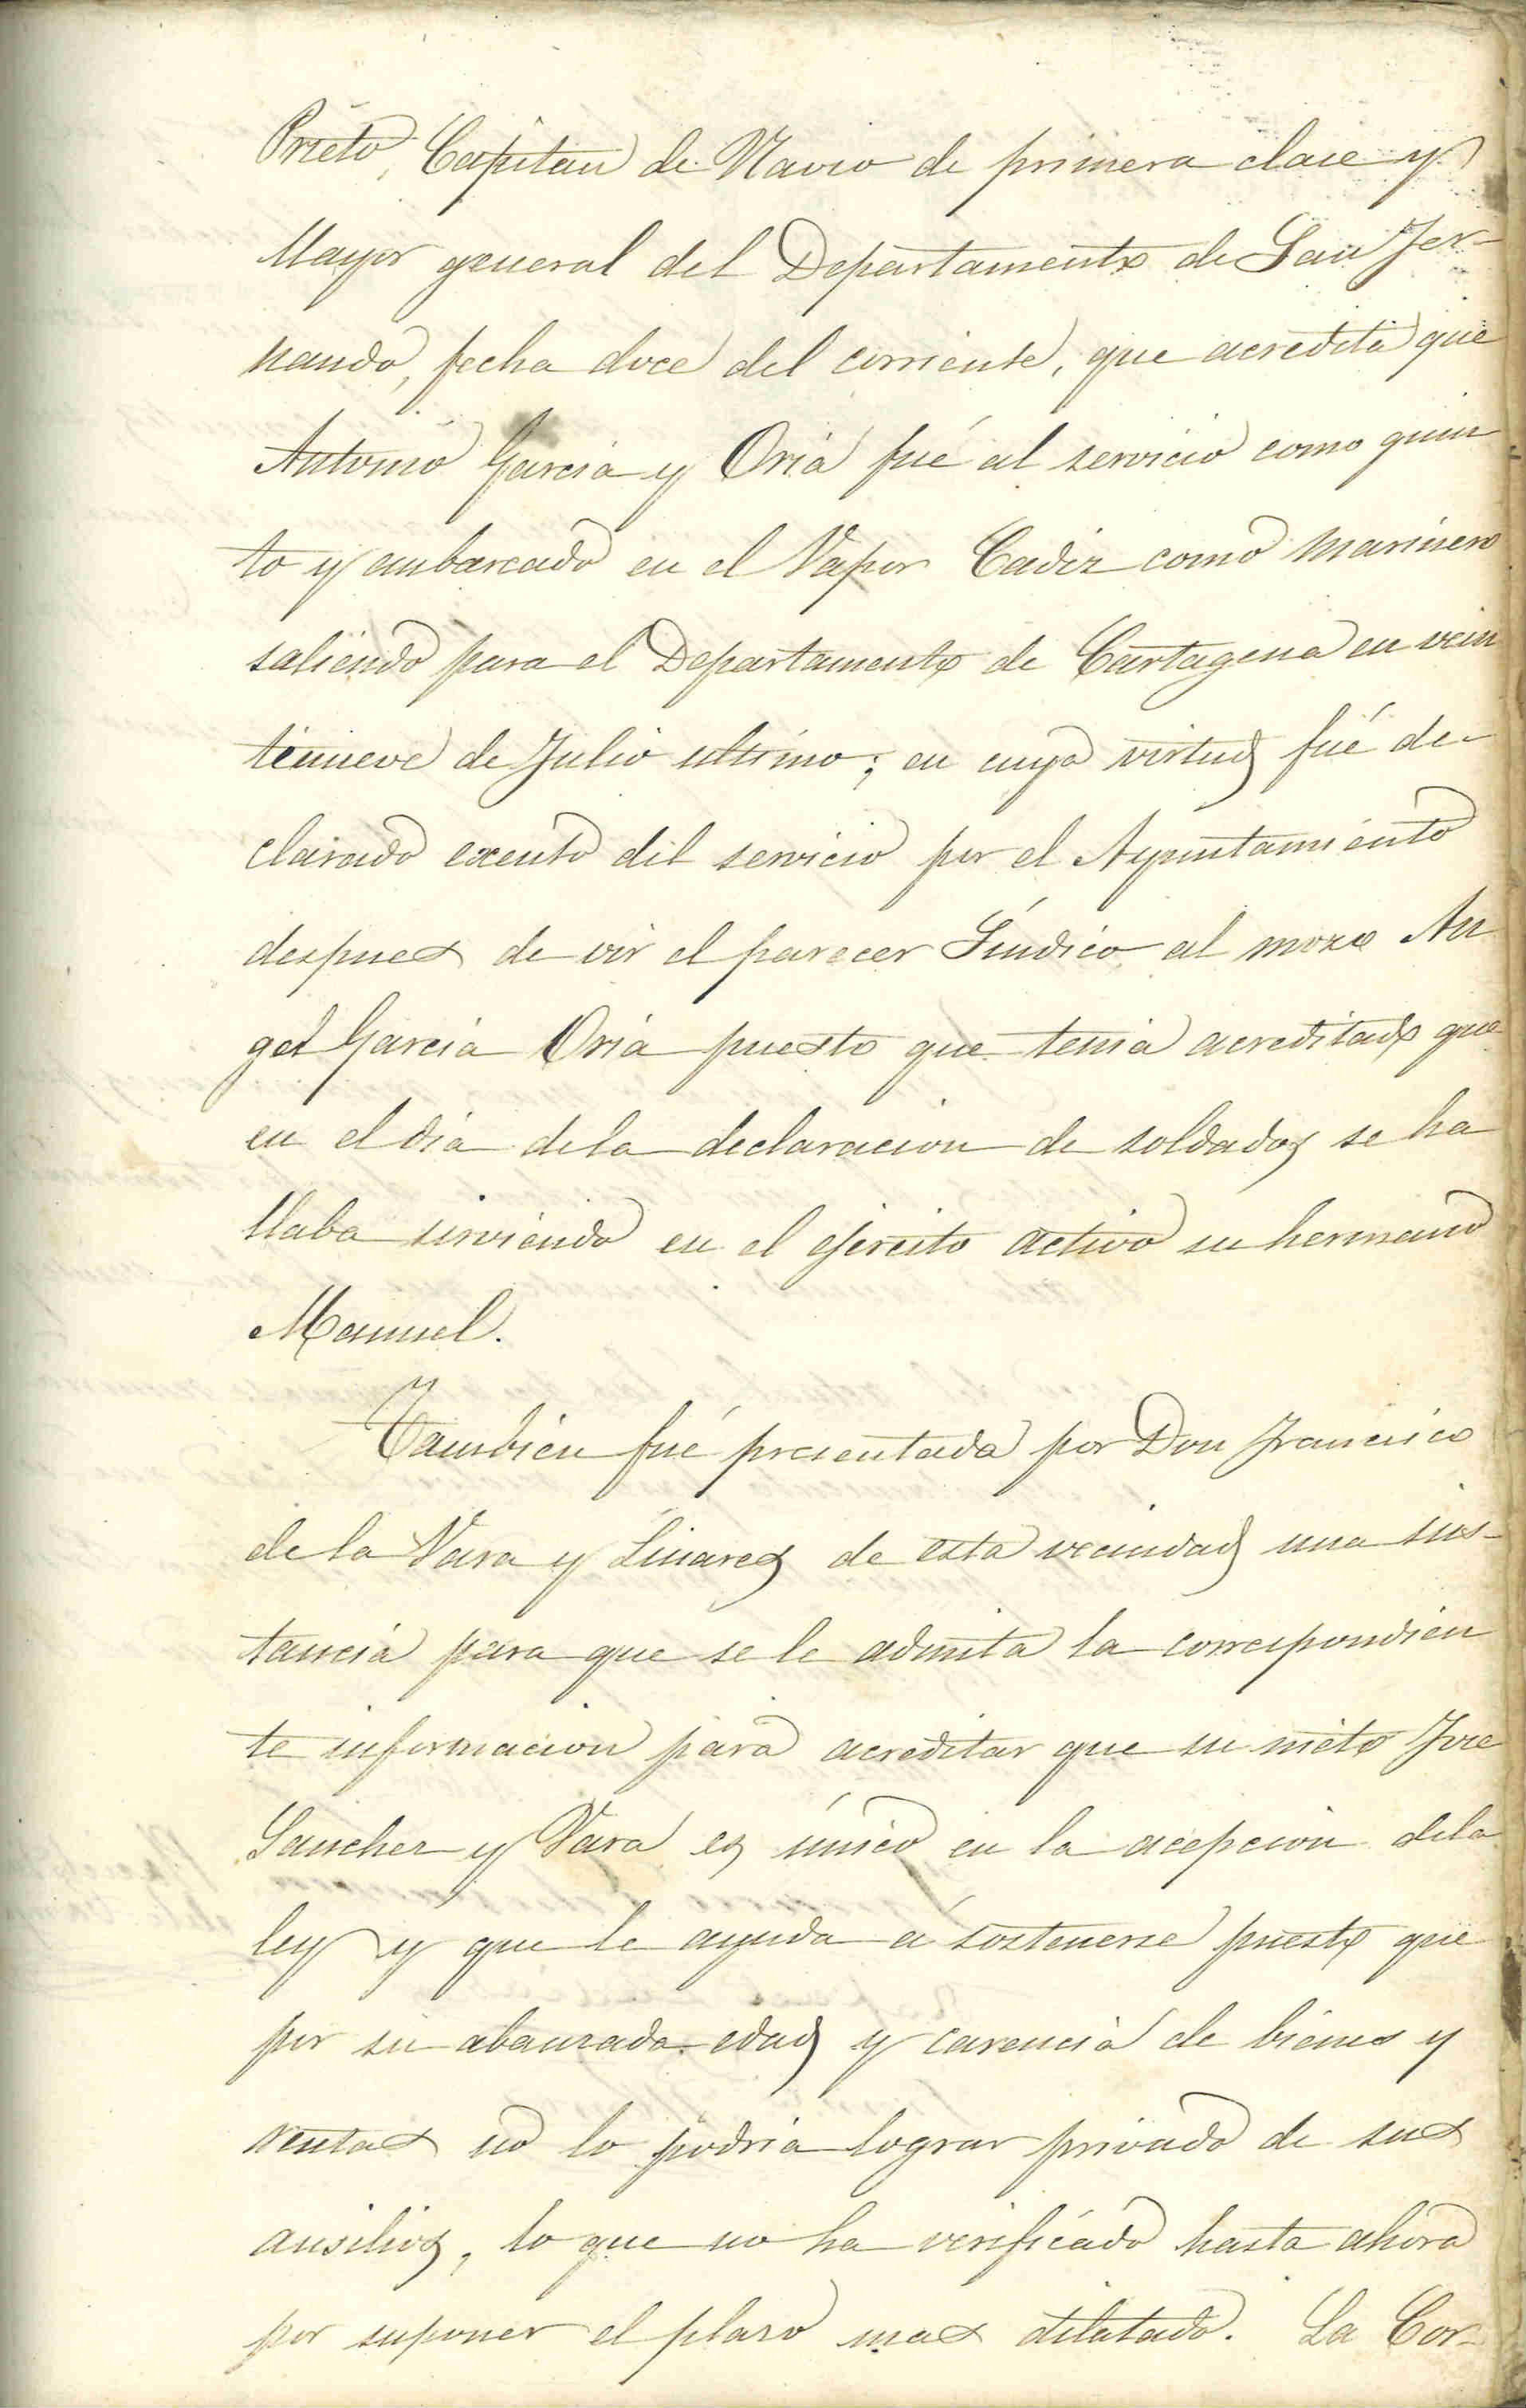 Prieto, Capitan de Navio de primera clase y
Mayor general del Departamento de San Fer-
nando, fecha doce del corriente, que acredita que
Antonio Garcia y Oria fué al servicio como quin
to y embarcado en el Vapor Cadiz como marinero
saliendo para el Departamento de Cartagena en vein
tinueve de Julio ultimo; en cuya virtud fué de-
clarado exento del servicio por el Ayuntamiento
despues de oir el parecer Síndico al mozo An
gel Garcia Oria puesto que tenia acreditado que
en el dia dela declaracion de soldados se ha
llaba sirviendo en el ejercito activo su hermano
Manuel.
Tambien fué presentada por Don Francisco
de la Vara y Linares de esta vecindad una ins-
tancia para que se le admita la correspondien
te informacion para acreditar que su nieto Jose
Sanchez y Vara es único en la acepcion dela
ley y que le ayuda á sostenerse puesto que
por su abanzada edad y carencia de bienes y
rentas no lo podria lograr privado de sus
ausilios, lo que no ha verificado hasta ahora
por suponer el plaso mas dilatado. La Cor-